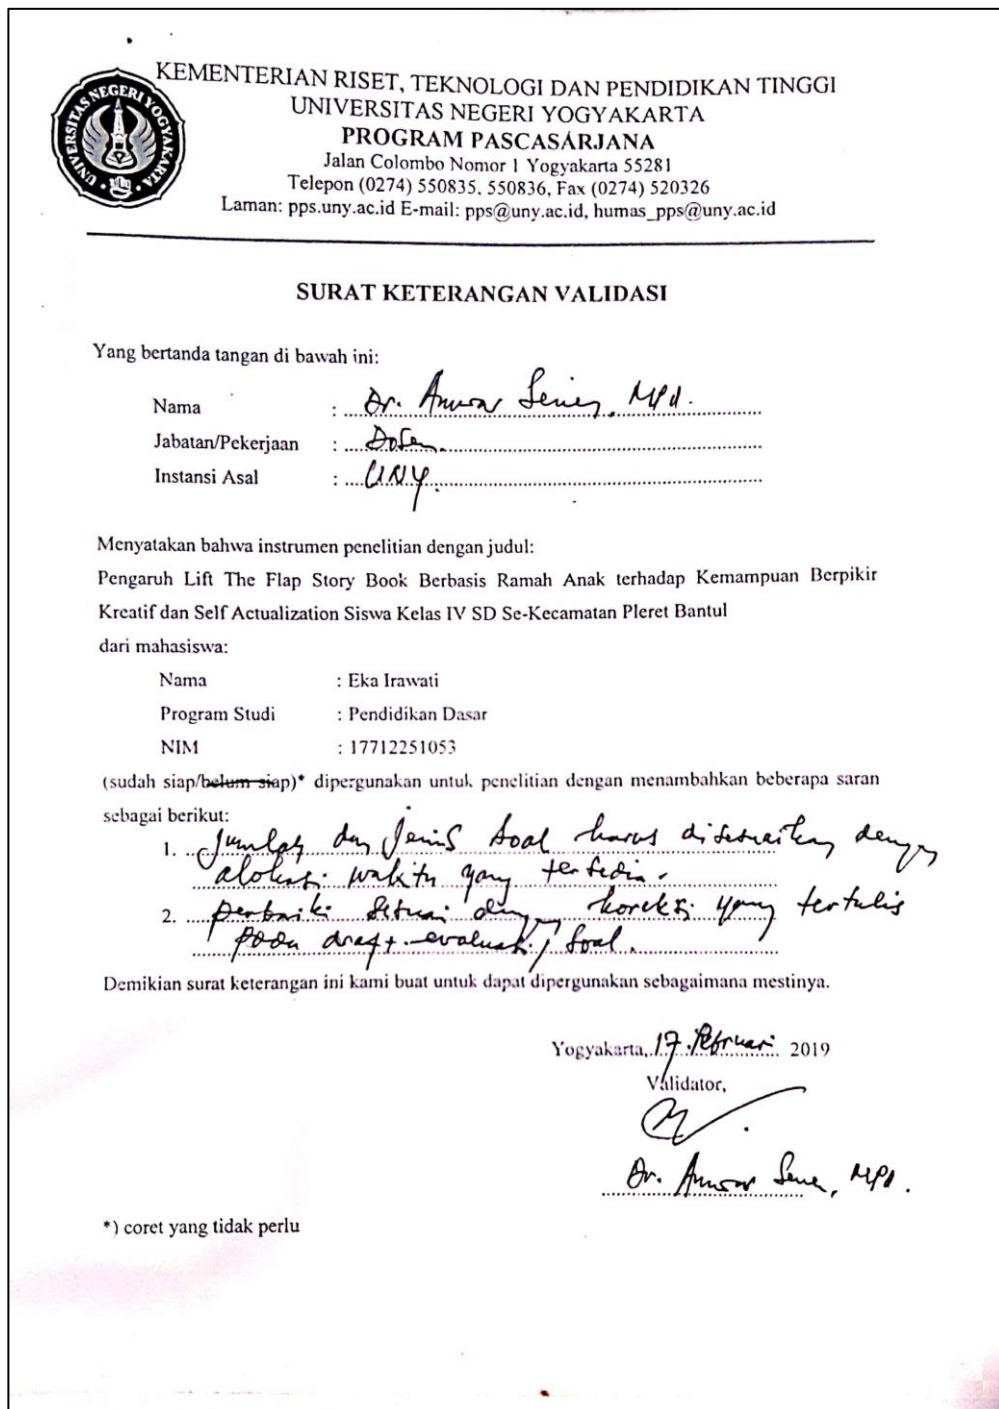 KEMENTERIAN RISET, TEKNOLOGI DAN PENDIDIKAN TINGGI
UNIVERSITAS NEGERI YOGYAKARTA
PROGRAM PASCASARJANA
Jalan Colombo Nomor 1 Yogyakarta 55281
Telepon (0274) 550835, 550836, Fax (0274) 520326
Laman: pps.uny.ac.id E-mail: pps@uny.ac.id, humas_pps@uny.ac.id
UNIVERSITAS NEGERI YOGYAKARTA
SURAT KETERANGAN VALIDASI
Yang bertanda tangan di bawah ini:
Nama : Dr. Anwar Senen, MPd.
Jabatan/Pekerjaan : Dosen
Instansi Asal : UNY.
Menyatakan bahwa instrumen penelitian dengan judul:
Pengaruh Lift The Flap Story Book Berbasis Ramah Anak terhadap Kemampuan Berpikir
Kreatif dan Self Actualization Siswa Kelas IV SD Se-Kecamatan Pleret Bantul
dari mahasiswa:
Nama : Eka Irawati
Program Studi : Pendidikan Dasar
NIM : 17712251053
(sudah siap/belum siap)* dipergunakan untuk penelitian dengan menambahkan beberapa saran
sebagai berikut:
1. Jumlah dan Jenis Soal harus disesuaikan dengan
alokasi waktu yang tersedia.
2. perbaiki sesuai dengan koreksi yang tertulis
pada draft evaluasi / soal.
Demikian surat keterangan ini kami buat untuk dapat dipergunakan sebagaimana mestinya.
Yogyakarta, 17 Februari 2019
Validator,
Dr. Anwar Senen, MPd.
*) coret yang tidak perlu